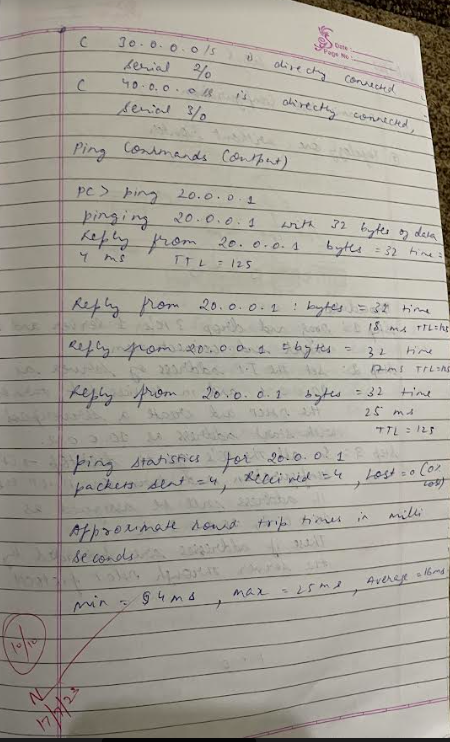 Date :
Page No :
C 30.0.0.0/8 is directly connected
Serial 2/0
C 40.0.0.0/8 is directly connected,
Serial 3/0
Ping Commands (Output)
PC> ping 20.0.0.1
pinging 20.0.0.1 with 32 bytes of data
Reply from 20.0.0.1 bytes = 32 time =
4 ms TTL = 125
Reply from 20.0.0.1 : bytes = 32 time
18 ms TTL=
Reply from 20.0.0.1 = bytes = 32 time
17 ms TTL=
Reply from 20.0.0.1 bytes = 32 time
25 ms
TTL = 125
Ping statistics for 20.0.0.1
packets sent = 4, Received = 4, Lost = 0 (0%
loss)
Approximate round trip times in milli
seconds
min = 4 ms , max = 25 ms , Average = 16 ms
10/10